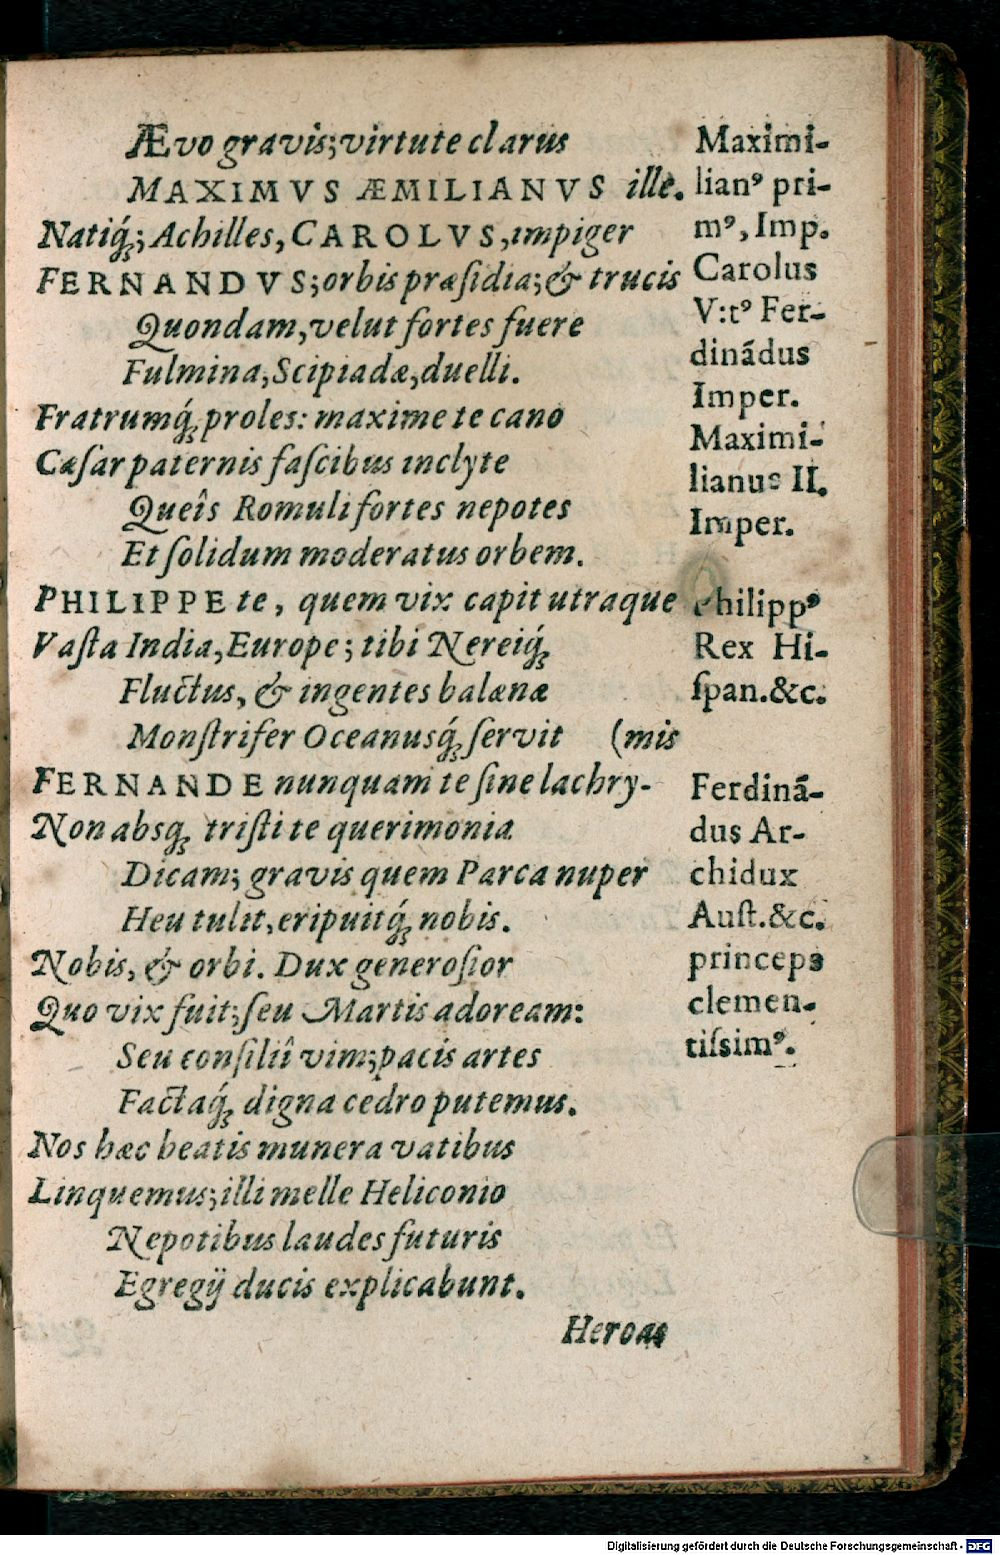 Ævo gravis; virtute clarus
MAXIMVS ÆMILIANVS ille.
Natiq́;; Achilles, CAROLVS, impiger
FERNANDVS; orbis præsidia; & trucis
Quondam, velut fortes fuere
Fulmina, Scipiadæ, duelli.
Fratrumq́; proles: maxime te cano
Cæsar paternis fascibus inclyte
Queîs Romuli fortes nepotes
Et solidum moderatus orbem.
PHILIPPE te, quem vix capit utraque
Vasta India, Europe; tibi Nereiq́;
Fluctus, & ingentes balænæ
Monstrifer Oceanusq́; servit (mis
FERNANDE nunquam te sine lachry-
Non absq; tristi te querimonia
Dicam; gravis quem Parca nuper
Heu tulit, eripuitq́; nobis.
Nobis, & orbi. Dux generosior
Quo vix fuit; seu Martis adoream:
Seu consiliî vim; pacis artes
Factaq́; digna cedro putemus.
Nos hæc beatis munera vatibus
Linquemus; illi melle Heliconio
Nepotibus laudes futuris
Egregij ducis explicabunt.
Heroas
Maximi-
lianꝰ pri-
mꝰ, Imp.
Carolus
V:tꝰ Fer-
dinādus
Imper.
Maximi-
lianus II.
Imper.
Philippꝰ
Rex Hi-
span.&c.
Ferdinā-
dus Ar-
chidux
Aust.&c.
princeps
clemen-
tissimꝰ.
Digitalisierung gefördert durch die Deutsche Forschungsgemeinschaft - DFG